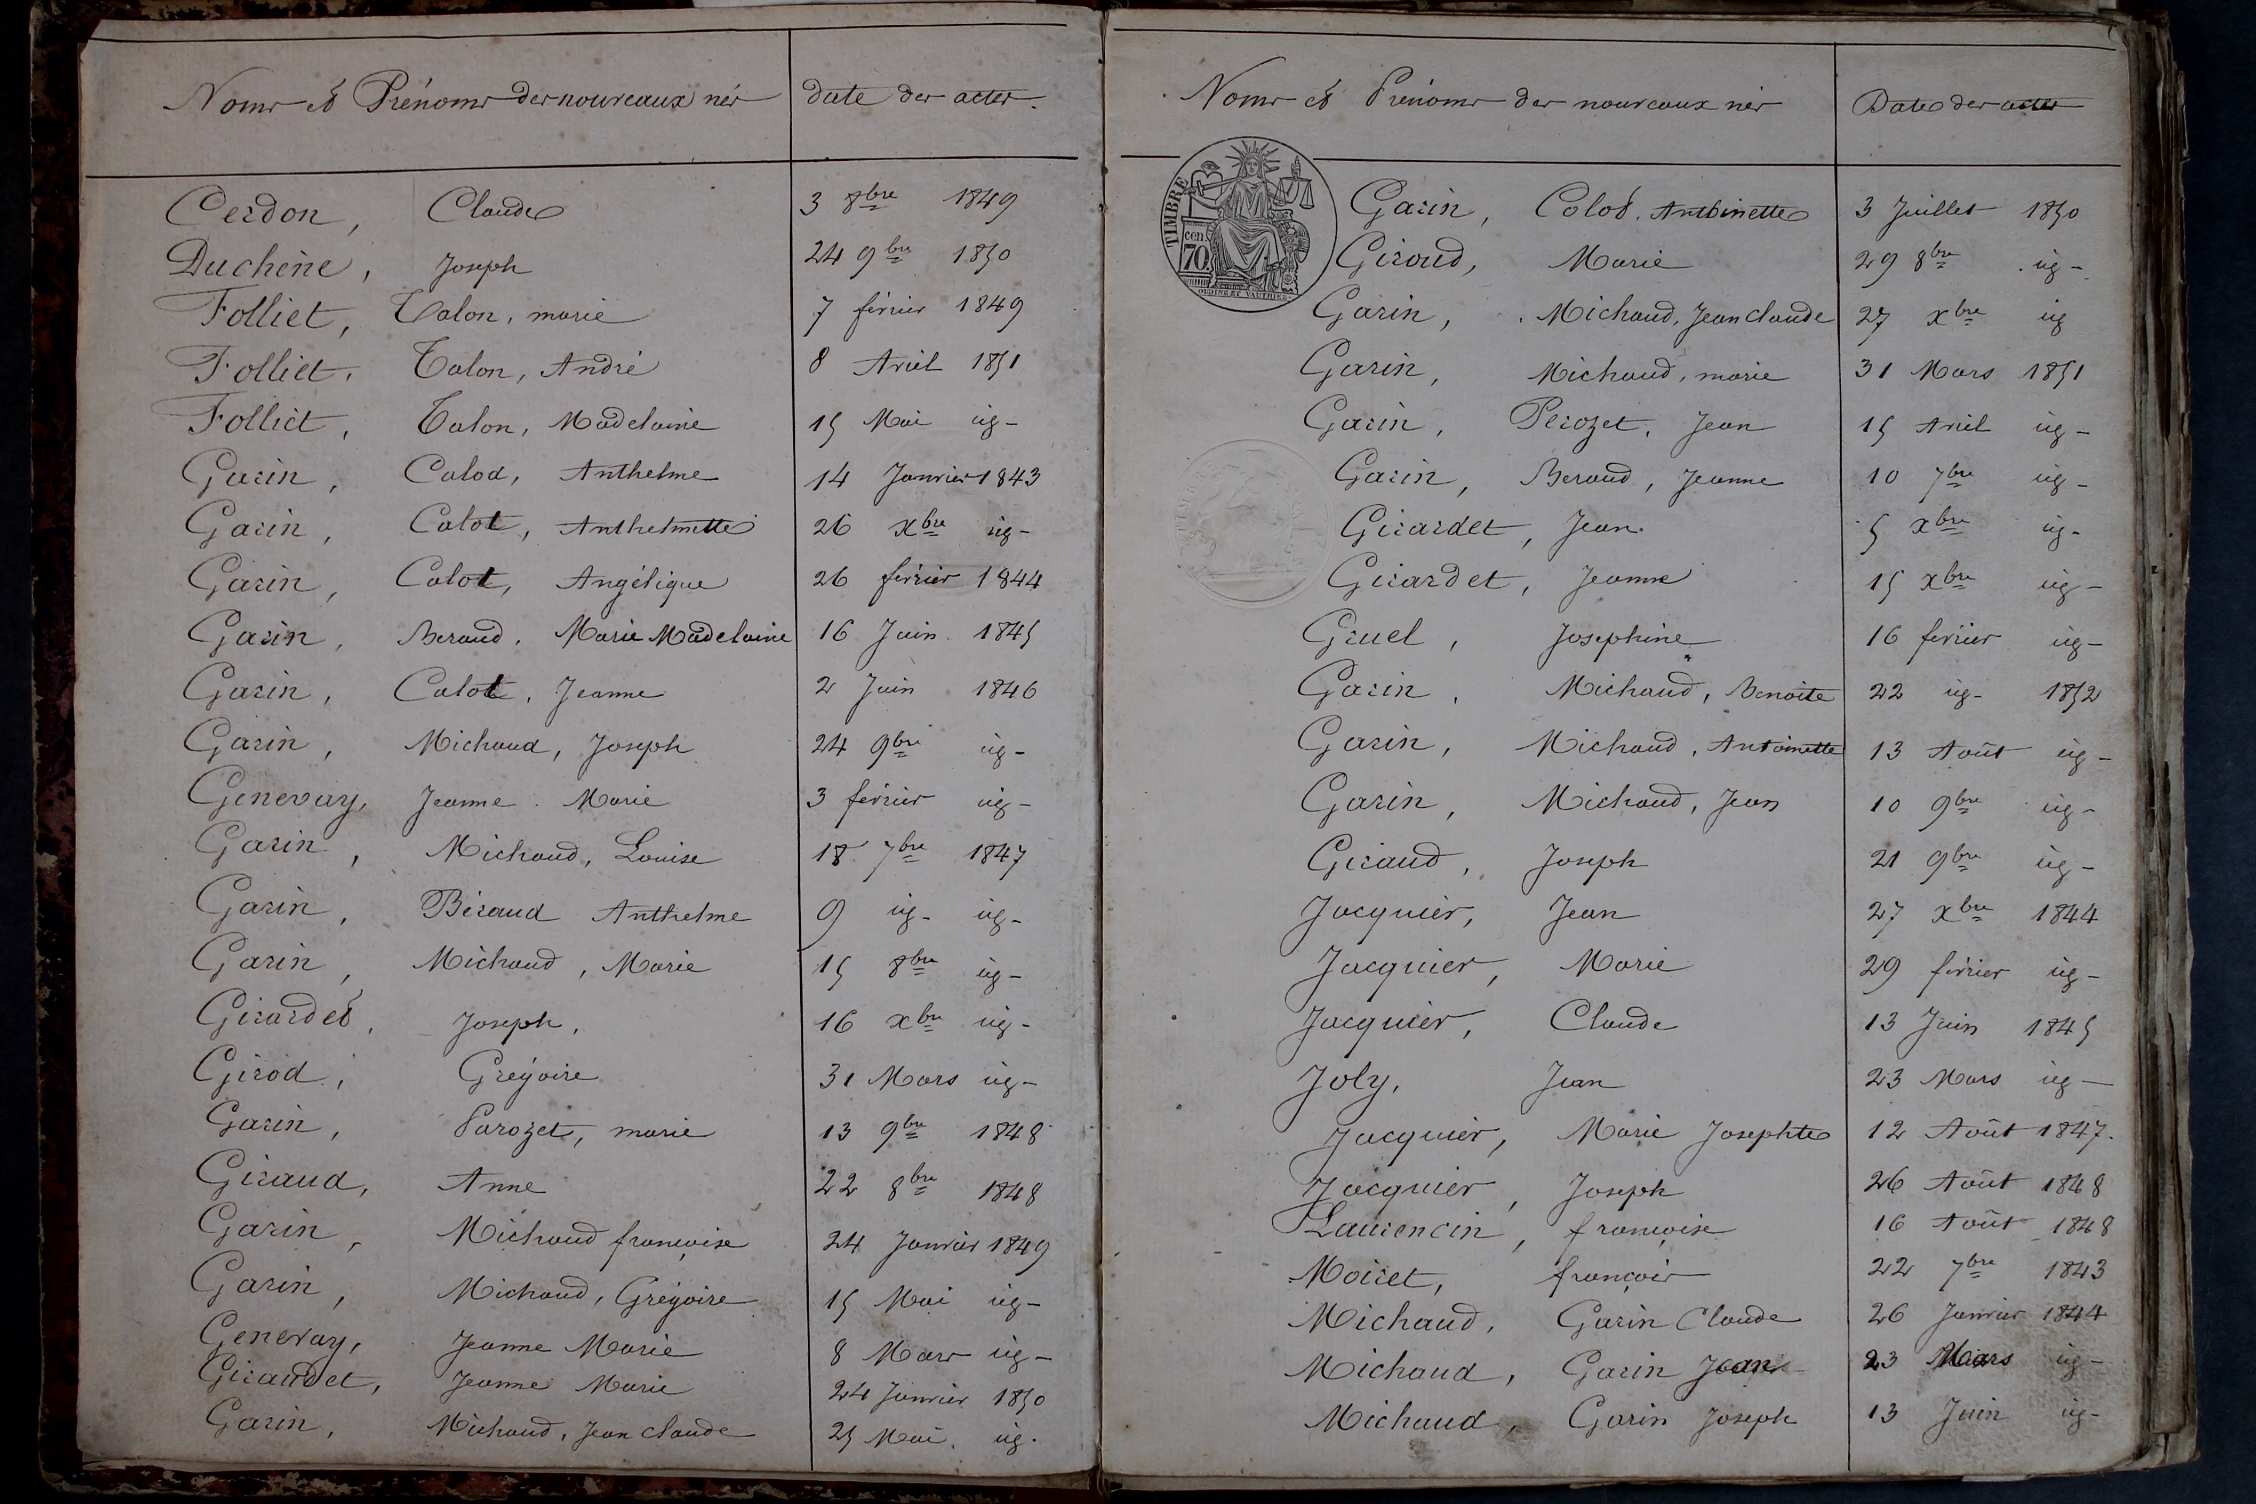 Noms et Prénoms des nouveaux nés date des actes.
Cerdon, Claude 3 8bre 1849
Duchêne, Joseph 24 9bre 1850
Folliet, Talon, marie 7 février 1849
Folliet, Talon, André 8 Avril 1851
Folliet, Talon, Madelaine 15 Mai id-
Garin, Calod, Anthelme 14 Janvier 1843
Garin, Calot, Anthelmette 26 xbre id-
Garin, Calot, Angélique 26 février 1844
Garin, Beraud, Marie Madelaine 16 Juin 1845
Garin, Calot, Jeanne 2 Juin 1846
Garin, Michaud, Joseph 24 9bre id-
Genevay, Jeanne Marie 3 février id-
Garin, Michaud, Louise 18 7bre 1847
Garin, Béraud Anthelme 9 id- id-
Garin, Michaud, Marie 15 8bre id-
Girardet, Joseph, 16 xbre id-
Girod, Grégoire 31 Mars id-
Garin, Parozet, marie 13 9bre 1848
Giraud, Anne 22 8bre 1848
Garin, Michaud françoise 24 Janvier 1849
Garin, Michaud, Grégoire 15 Mai id-
Genevay, Jeanne Marie 8 Mars id-
Giraudet, Jeanne Marie 24 Janvier 1850
Garin, Michaud, Jean claude 25 Mai id.
Noms et Prénoms des nouveaux nés Date des actes
TIMBRE
cen.
70
Garin, Colot, Anthinette 3 Juillet 1850
Giroud, Marie 29 8bre id-
Garin, Michaud, Jean claude 27 xbre id
Garin, Michaud, marie 31 Mars 1851
Garin, Perozet, Jean 15 Avril id-
Garin, Beraud, Jeanne 10 7bre id-
Girardet, Jean 5 xbre id-
Girardet, Jeanne 15 xbre id-
Gruel, Josephine 16 fevrier id-
Garin, Michaud, Benoite 22 id- 1852
Garin, Michaud, Antoinette 13 Août id-
Garin, Michaud, Jean 10 9bre id-
Giraud, Joseph 21 9bre id-
Jacquier, Jean 27 xbre 1844
Jacquier, Marie 29 février id-
Jacquier, Claude 13 Juin 1845
Joly, Jean 23 Mars id-
Jacquier, Marie Josephte 12 Août 1847.
Jacquier, Joseph 26 Août 1848
Laurencin, françoise 16 Août 1848
Moiret, françois 22 7bre 1843
Michaud, Garin Claude 26 Janvier 1844
Michaud, Garin Jean 23 Mars id-
Michaud, Garin Joseph 13 Juin id-